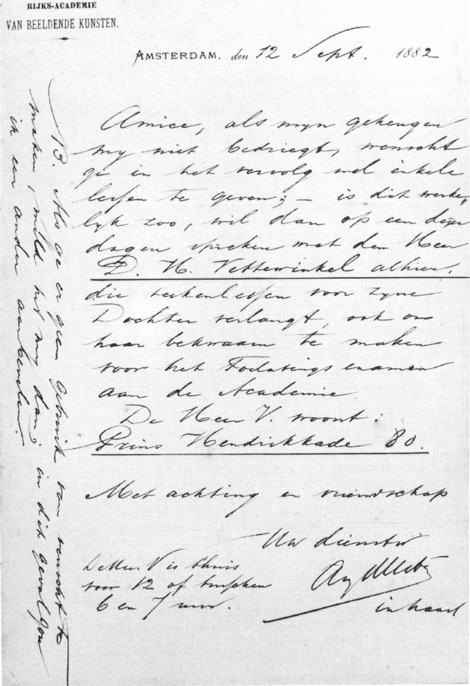 RIJKS-ACADEMIE
VAN BEELDENDE KUNSTEN.
AMSTERDAM, den 12 Sept. 1882
Amice, als mijn geheugen
my niet bedriegt, wenscht
ge in het vervolg wel enkele
lessen te geven; – is dit werke-
lyk zoo, wil dan op een dezer
dagen spreken met den Heer
D. H. Vettewinkel alhier.
die teekenlessen voor zyne
Dochter verlangt, ook om
haar bekwaam te maken
voor het Toelatings examen
aan de Academie.
De Heer V. woont:
Prins Hendrikkade 80.
Met achting en vriendschap
Uw dienstw
in haast
De Heer V is thuis
voor 12 of tusschen
6 en 7 uur.
NB. Als ge er geen gebruik van wenscht te
maken, meld het my dan; in dit geval zou
ik een ander aanbevelen.